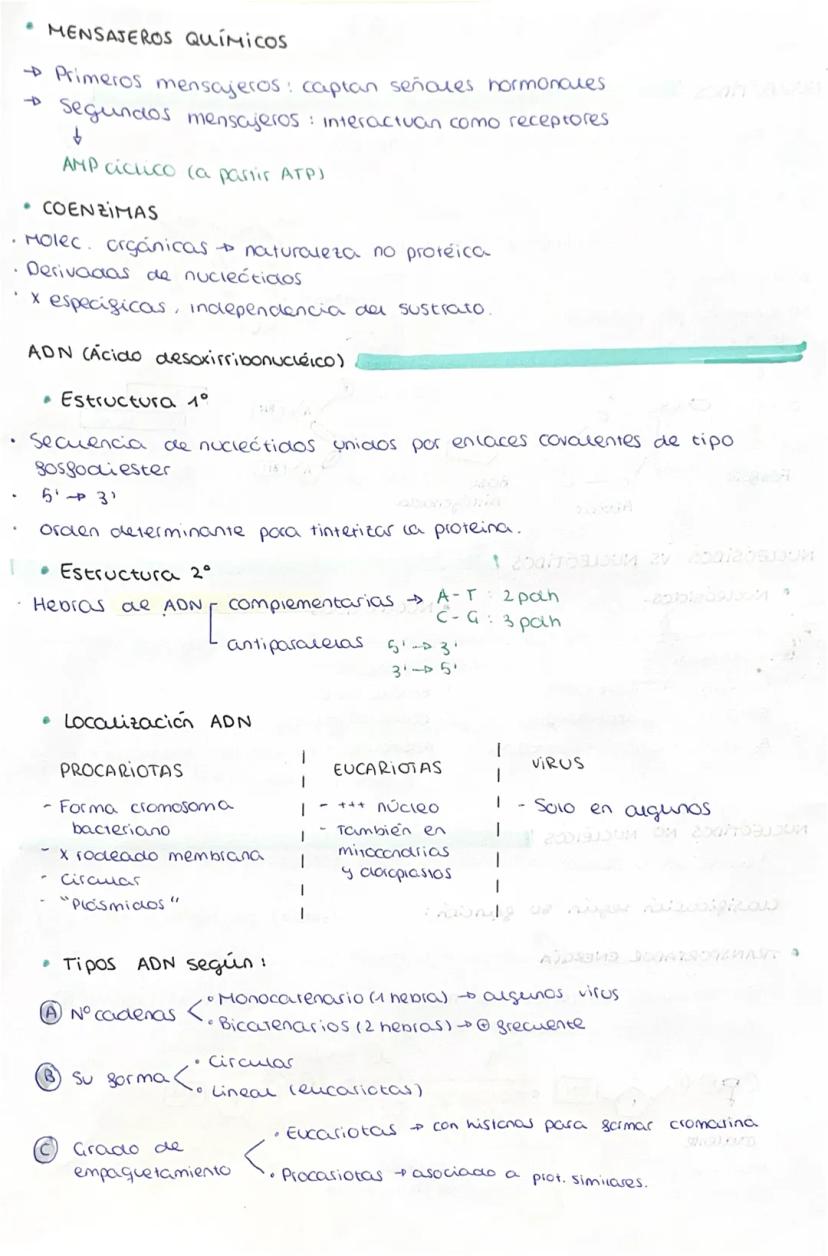 • MENSAJEROS QUÍMICOS
→ Primeros mensajeros: captan señales hormonales
→ Segundos mensajeros: interactuan como receptores
↓
AMP cíclico (a partir ATP)
• COENZIMAS
· Molec. orgánicas → naturaleza no protéica
· Derivadas de nucleótidos
· X específicas, independencia del sustrato.
ADN (Ácido desoxirribonucléico)
• Estructura 1º
· Secuencia de nucleótidos unidos por enlaces covalentes de tipo
fosfodiester
· 5' → 3'
· Orden determinante para tinterizar la proteína.
• Estructura 2º
· Hebras de ADN complementarias → A-T: 2 pdh
C-G: 3 pdh
antiparalelas 5' → 3'
3' → 5'
• Localización ADN
PROCARIOTAS
- Forma cromosoma
bacteriano
- X rodeado membrana
- Circular
- "Plásmidos"
EUCARIOTAS
- +++ núcleo
- También en
mitocondrias
y cloroplastos
VIRUS
- Solo en algunos
• Tipos ADN según:
Ⓐ Nº cadenas
• Monocatenario (1 hebra) → algunos virus
• Bicatenarios (2 hebras) → ⊕ frecuente
Ⓑ Su forma
• Circular
• Lineal (eucariotas)
Ⓒ Grado de
empaquetamiento
• Eucariotas → con histonas para formar cromatina
• Procariotas → asociado a prot. similares.